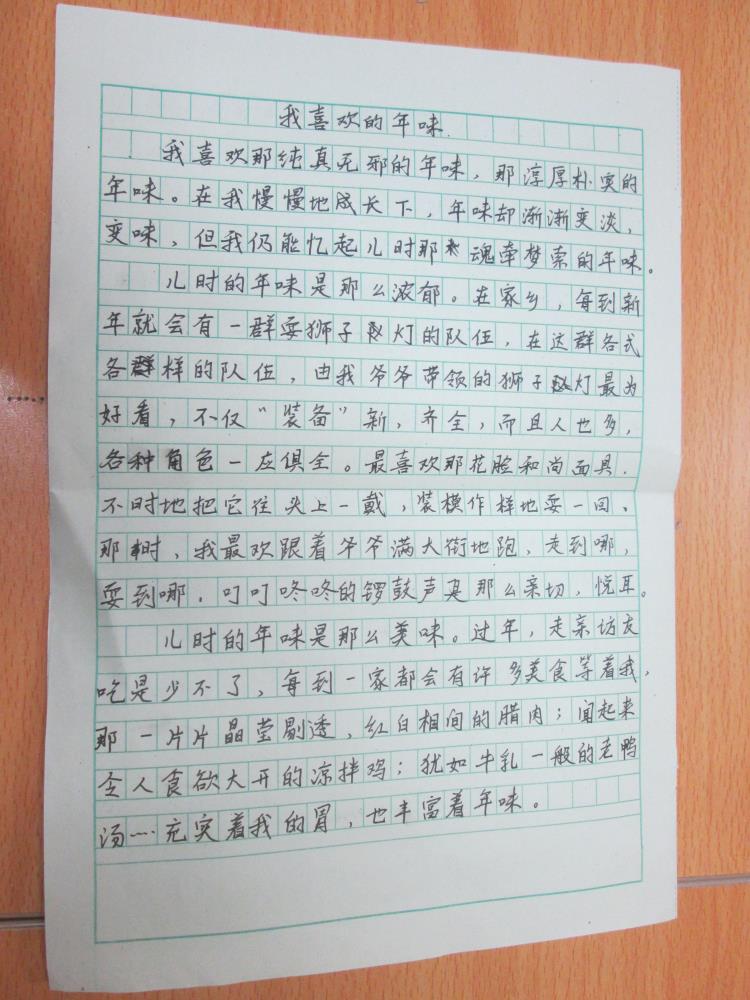 我喜欢的年味
我喜欢那纯真无邪的年味，那淳厚朴实的
年味。在我慢慢地成长下，年味却渐渐变淡，
变味，但我仍能忆起儿时那魂牵梦索的年味。
儿时的年味是那么浓郁。在家乡，每到新
年就会有一群耍狮子灯的队伍，在这群各式
各样的队伍，由我爷爷带领的狮子灯最为
好看，不仅“装备”新，齐全，而且人也多，
各种角色一应俱全。最喜欢那花脸和尚面具，
不时地把它往头上一戴，装模作样地耍一回，
那时，我最欢跟着爷爷满大街地跑，走到哪，
耍到哪，叮叮咚咚的锣鼓声真那么亲切，悦耳。
儿时的年味是那么美味。过年，走亲访友
吃是少不了，每到一家都会有许多美食等着我，
那一片片晶莹剔透，红白相间的腊肉；闻起来
令人食欲大开的凉拌鸡；犹如牛乳一般的老鸭
汤……充实着我的胃，也丰富着年味。